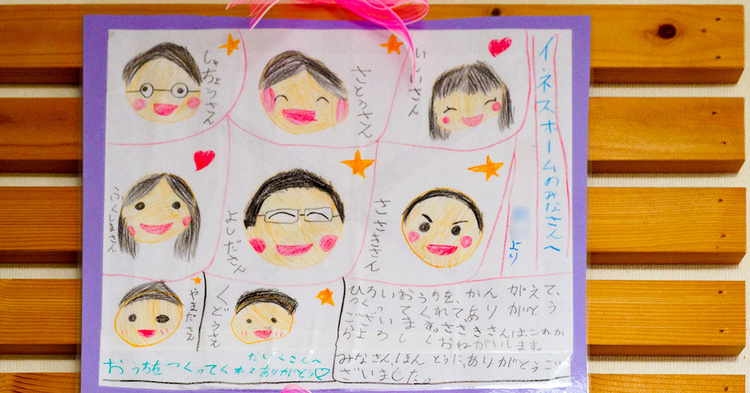 イ・ネスホームのみなさんへ
より
いしいさん
さとうさん
しゃちょうさん
ささきさん
よしださん
ふくしまさん
くどうさん
やまださん
ひろいおうちを、かんがえて、
つくってくれてありがとう
ございます。ささきさんはこれか
らよろしくおねがいします。
みなさんほんとうに、ありがとうご
ざいました。
だいくさんへ
おうちをつくってくれてありがとう♡